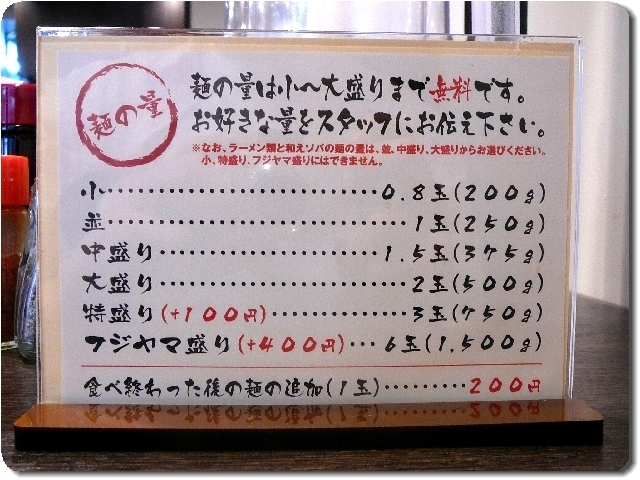 麺の量
麺の量は小〜大盛りまで無料です。
お好きな量をスタッフにお伝え下さい。
※なお、ラーメン類と和えソバの麺の量は、並、中盛り、大盛りからお選びください。
小、特盛り、フジヤマ盛りにはできません。
小・・・・・・・・・・・・・・・・・・・・・・・・・・0.8玉(200g)
並・・・・・・・・・・・・・・・・・・・・・・・・・・・・1玉(250g)
中盛り・・・・・・・・・・・・・・・・・・・・・・1.5玉(375g)
大盛り・・・・・・・・・・・・・・・・・・・・・・・・2玉(500g)
特盛り(+100円)・・・・・・・・・・・・・3玉(750g)
フジヤマ盛り(+400円)・・・6玉(1,500g)
食べ終わった後の麺の追加(1玉)・・・・・・・・200円